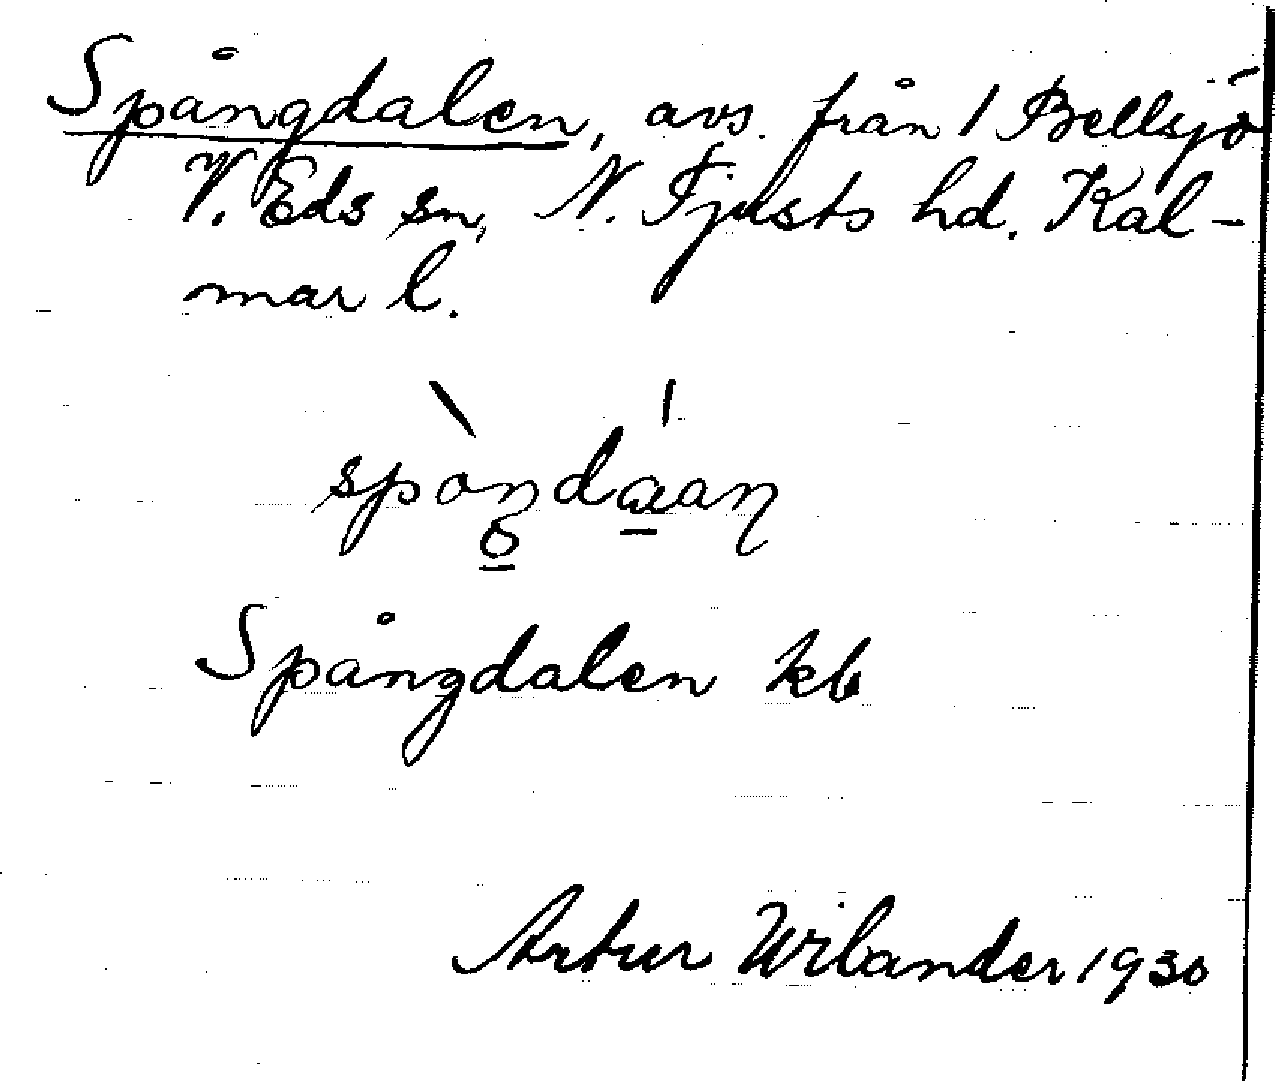 Spångdalen, avs. från 1 Bellsjö
V. Eds sn, N. Tjusts hd. Kal-
mar l.
Spångdalen kb
Artur Wilander 1930